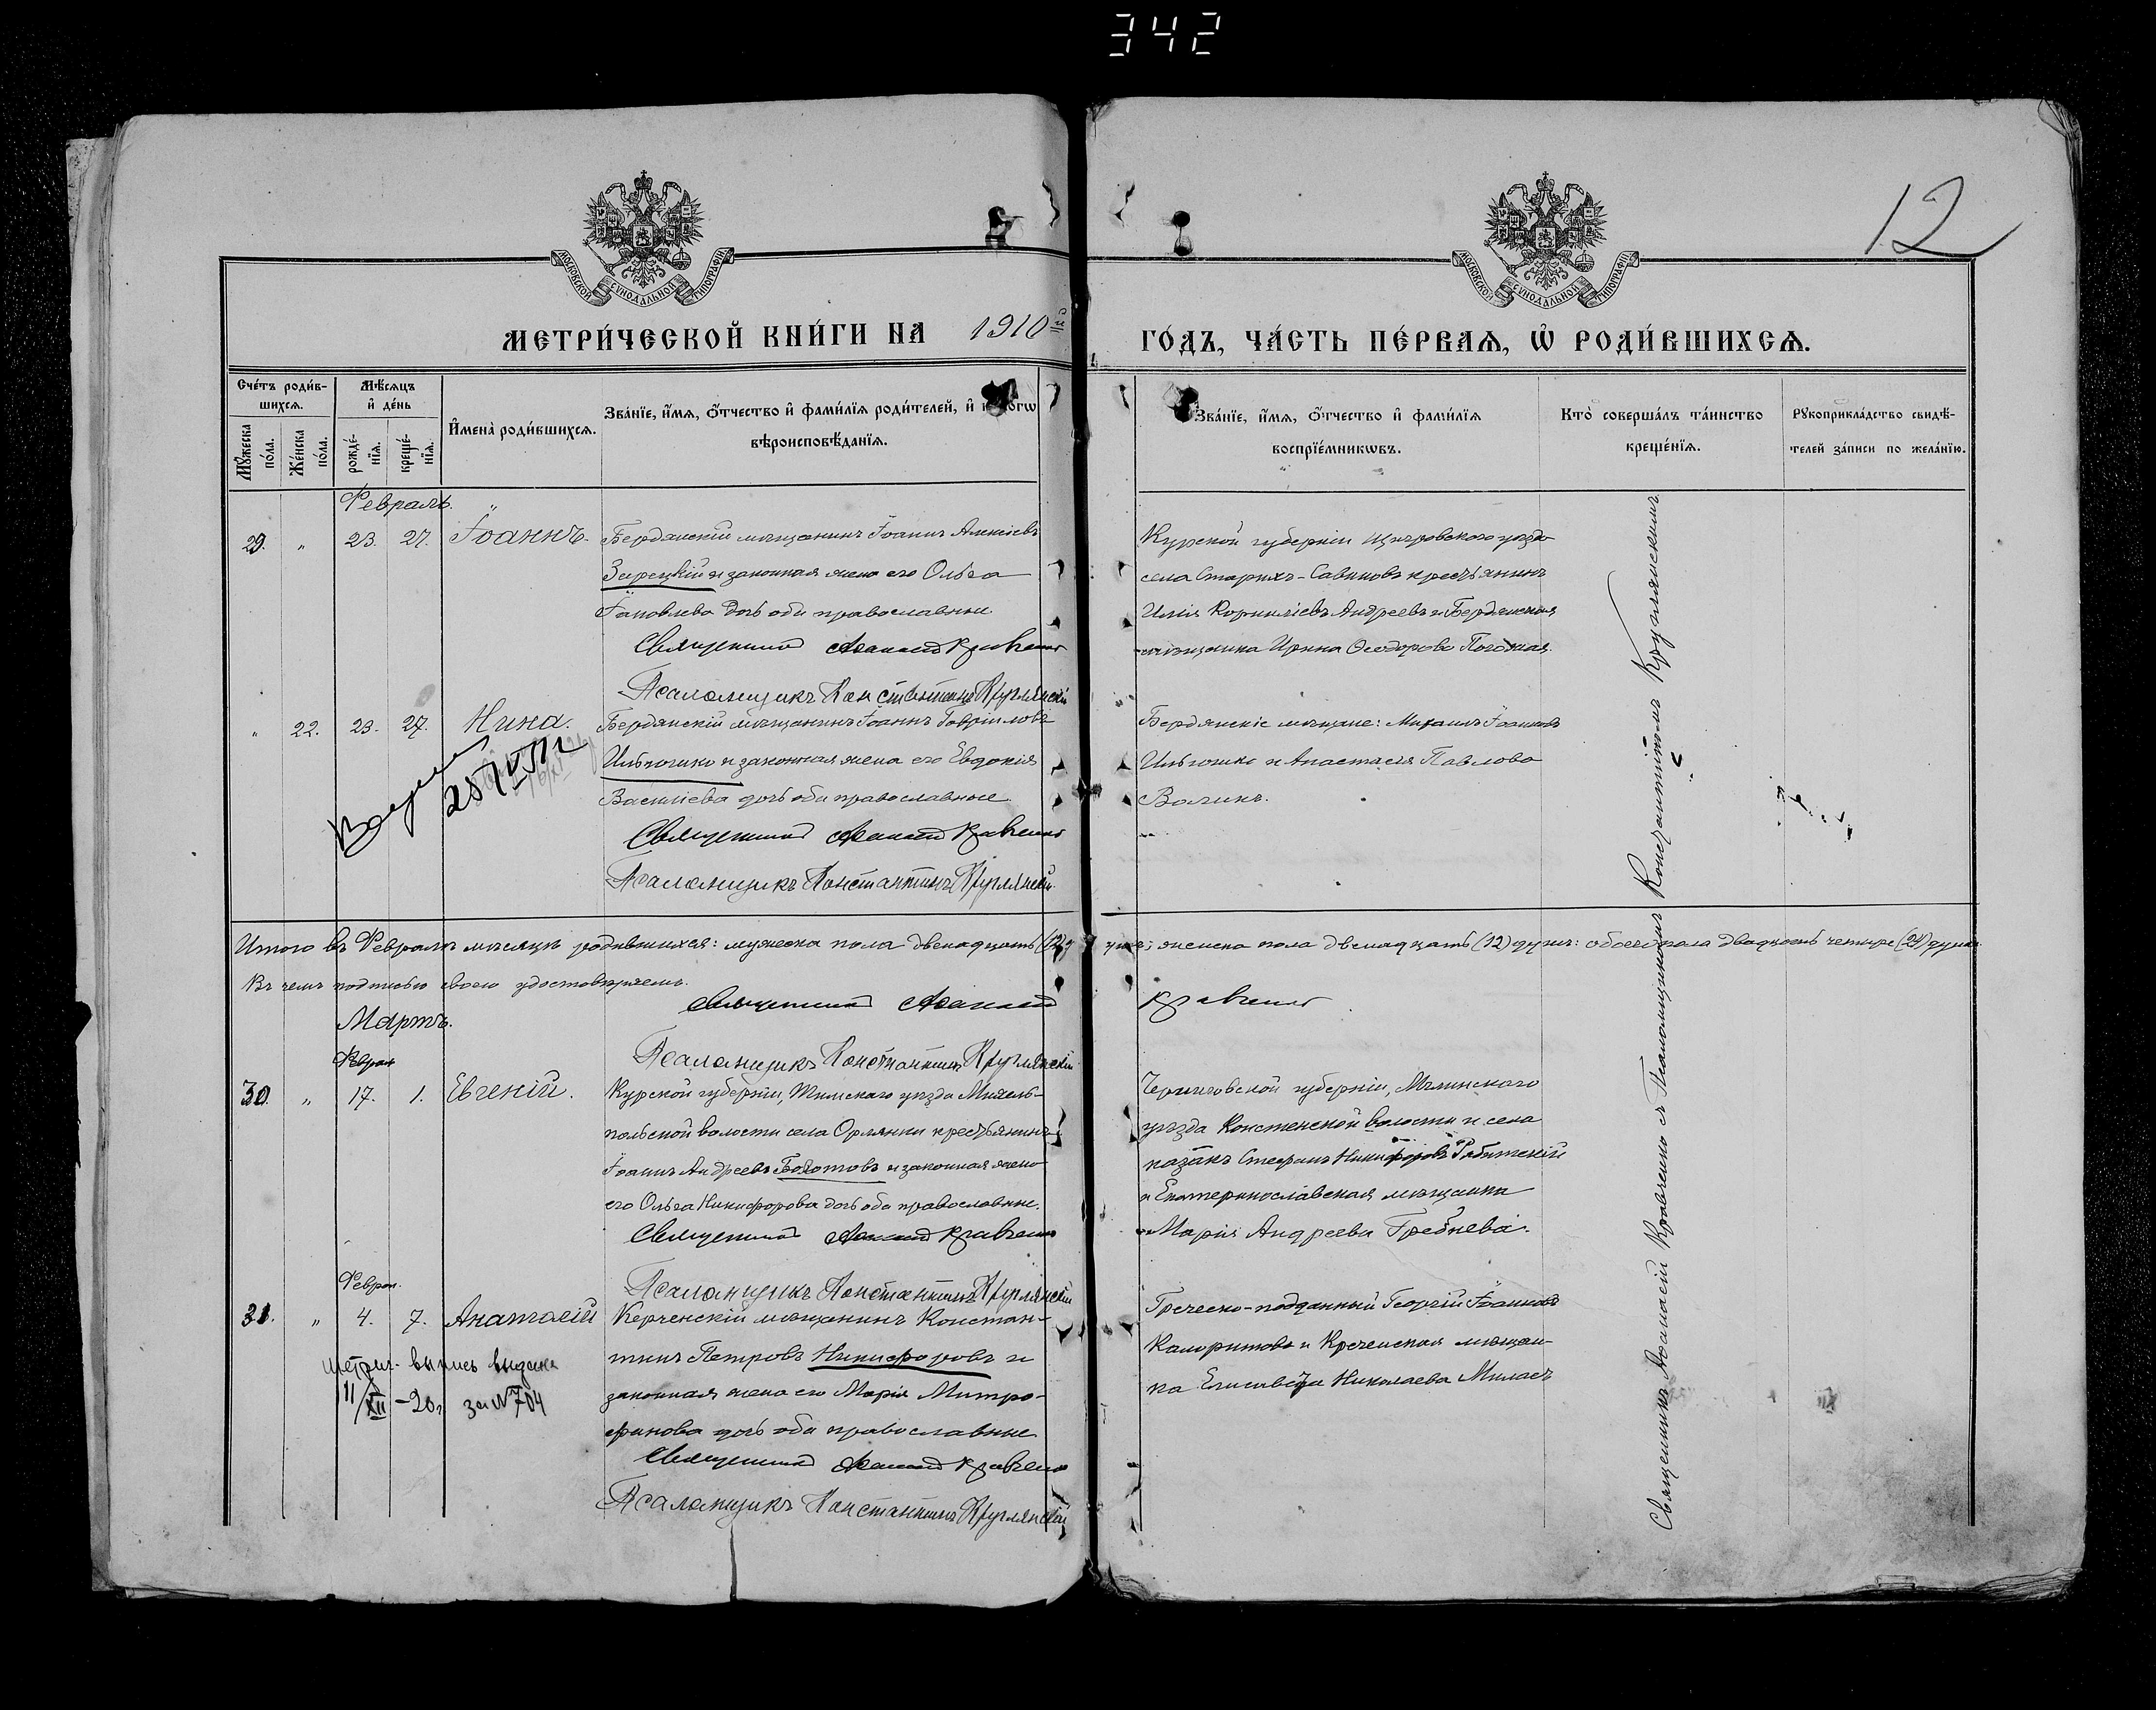 342
12
МОСКОВСКОЙ СѴНОДАЛЬНОЙ ТИПОГРАФІИ
МОСКОВСКОЙ СѴНОДАЛЬНОЙ ТИПОГРАФІИ
МЕТРИ́ЧЕСКОЙ КНИ́ГИ НА 1910й ГО́ДЪ, ЧА́СТЬ ПЕ́РВАѦ, Ѡ҆ РОДИ́ВШИХСѦ.
Сче́тъ роди́в-
шихсѧ.
Мѣ́сѧцъ
и҆ де́нь
Мꙋ́жеска по́ла.
Же́нска по́ла.
рожде́-
нїѧ.
креще́-
нїѧ.
И҆мена̀ роди́вшихсѧ.
Зва́нїе, и҆́мѧ, ѻ҆́тчество и҆ фами́лїѧ роди́телей, и҆
вѣроисповѣ́данїѧ.
Зва́нїе, и҆́мѧ, ѻ҆́тчество и҆ фами́лїѧ
воспрїе́мникѡвъ.
Кто̀ соверша́лъ та́инство
креще́нїѧ.
Рꙋкоприкла́дство свидѣ́-
телей за́писи по жела́нїю.
Февраль.
29. " 23. 27. Іоаннъ.
Бердянскій мѣщанинъ Іоаннъ Алексіевъ
Зарецкій и законная жена его Ольга
Іаковлева дочь оба православные
Священникъ Аѳанасій Кравченко
Псаломщикъ Константинъ Круглянскій
Курской губерніи Щигровского уѣзда
села Старыхъ-Савиновъ крестьянинъ
Илія Корниліевъ Андреевъ и Бердянская
мѣщанка Ирина Ѳеодорова Погожая.
" 22. 23. 27. Нина.
Бердянскій мѣщанинъ Іоаннъ Гавріиловъ
и законная жена его Евдокія
Василіева дочь оба православные
Священникъ Аѳанасій Кравченко
Псаломщикъ Константинъ Круглянскій.
Бердянскіе мѣщане: Михаилъ Іоанновъ
и Анастасія Павлова
Воликъ.
Итого въ Февралѣ мѣсяцѣ родившихся: мужеска пола двенадцать (12) душъ; женска пола двенадцать (12) душъ: обоего пола двадцать четыре (24) души.
Въ чемъ подписью своею удостовѣряемъ.
Священникъ Аѳанасій Кравченко
Псаломщикъ Константинъ Круглянскій.
Мартъ.
Феврал
30. " 17. 1. Евгеній.
Курской губерніи, Тимскаго уѣзда Михель-
польской волости села Орлянки крестьянинъ
Іоаннъ Андреевъ Болотовъ и законная жена
его Ольга Никифорова дочь оба православные.
Священникъ Аѳанасій Кравченко
Псаломщикъ Константинъ Круглянскій
Черниговской губерніи, Мглинскаго
уѣзда Костенской волости и села
казакъ Стефанъ Никифоровъ
и Екатеринославская мѣщанка
Марія Андреева Гребнева.
Феврал.
31. " 4. 7. Анатолій
Керченскій мѣщанинъ Констан-
тинъ Петровъ Никифоровъ и
законная жена его Марія Митро-
фанова дочь оба православные
Священникъ Аѳанасій Кравченко
Псаломщикъ Константинъ Круглянскій
Греческо-подданный Георгій Іоанновъ
и Керченская мѣщан-
ка Елисавета Николаева
метрич. выпись выдана
11/XII - 20 г. за №704
Священникъ Аѳанасій Кравченко съ Псаломщикомъ Константиномъ Круглянскимъ